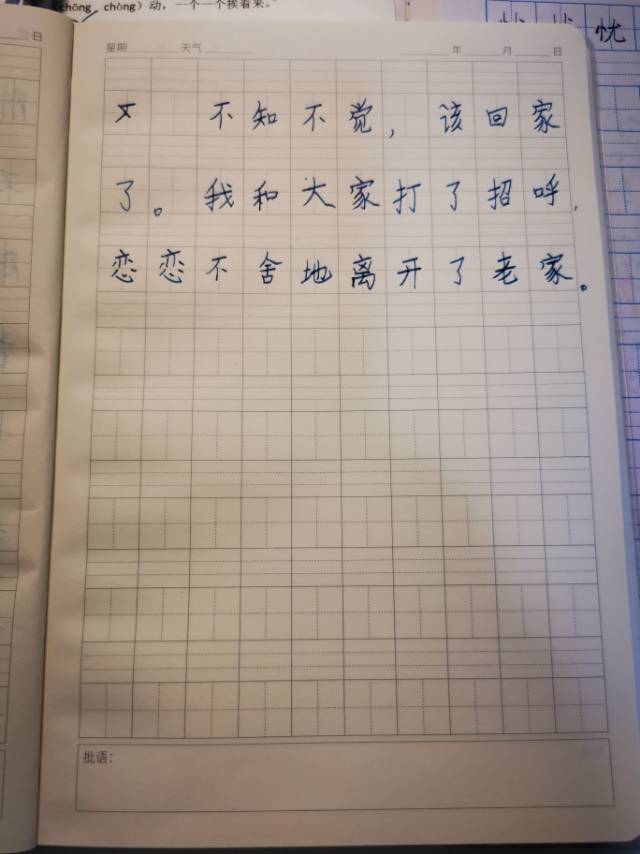 chōng chòng）动，一个一个挨着来。
忧
日
星期 天气 年 月 日
不知不觉，该回家
了。我和大家打了招呼，
恋恋不舍地离开了老家。
批语：